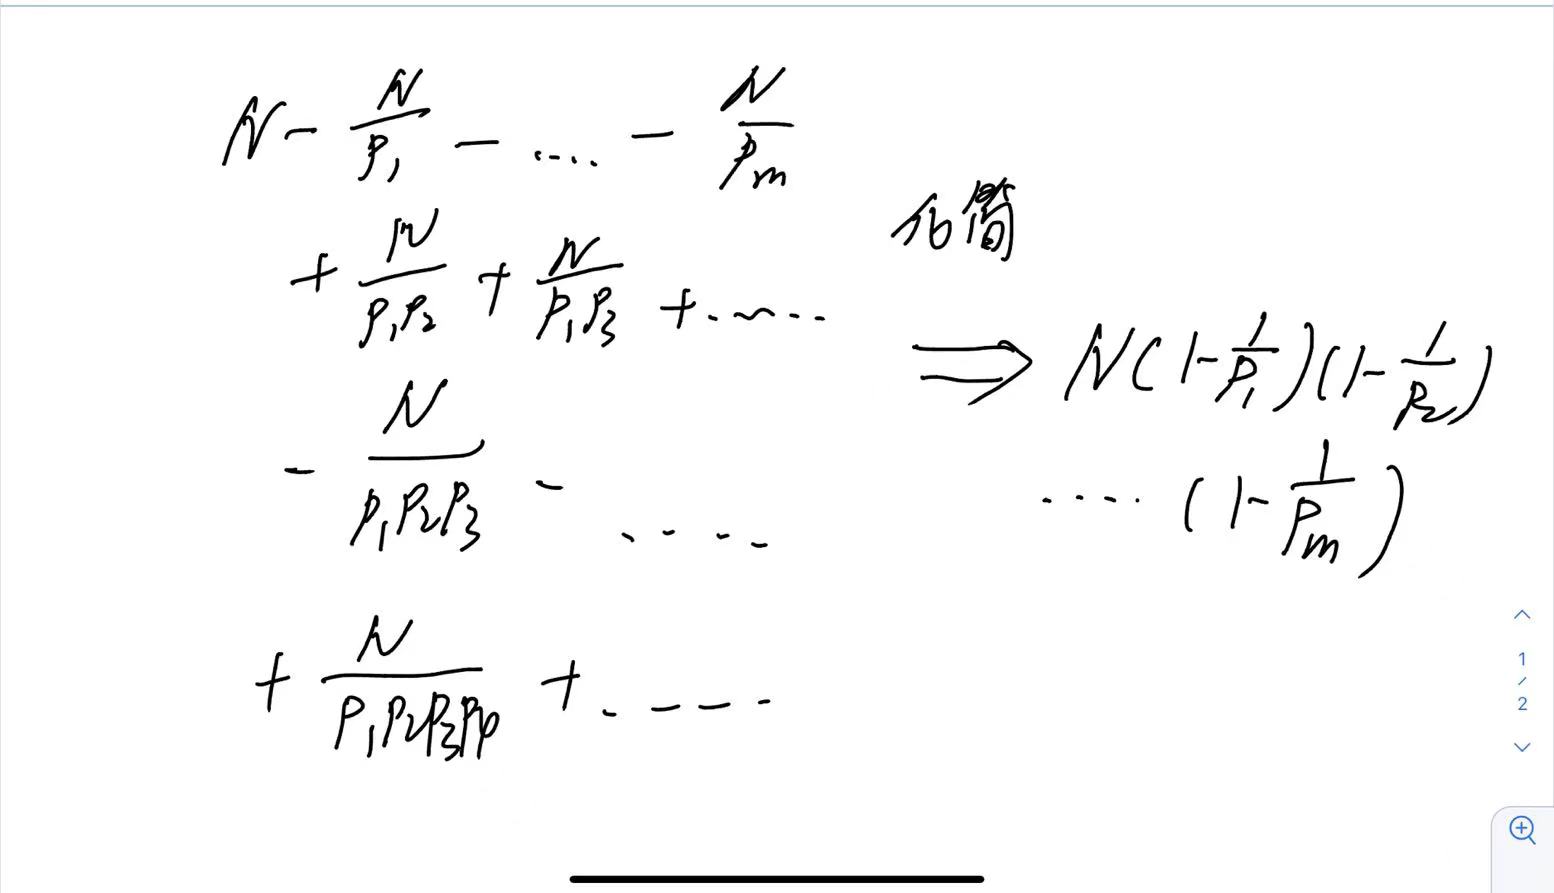 N - N/P₁ - .... - N/Pₘ
+ N/P₁P₂ + N/P₁P₃ + ......
- N/P₁P₂P₃ - ....
+ N/P₁P₂P₃P₄ + .....
化简
⇒ N(1-1/P₁)(1-1/P₂)
.... (1-1/Pₘ)
1
/
2